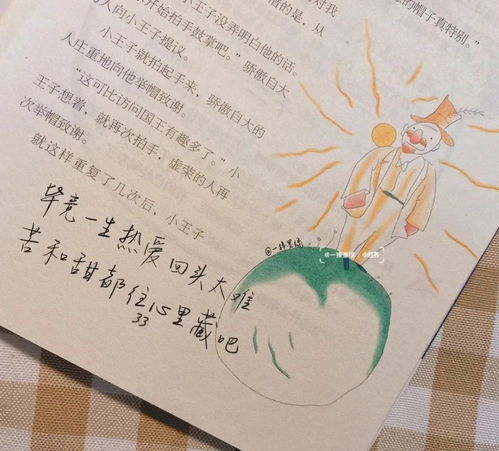 对我
惜的是，从
小王子没弄明白他的话。
开始拍手鼓掌吧。”骄傲自大
人向小王子提议。
小王子就拍起手来，骄傲自大的
人庄重地向他举帽致谢。
“这可比访问国王有趣多了。”小
王子想着，就再次拍手，虚荣的人再
次举帽致谢。
就这样重复了几次后，小王子
的帽子真特别。”
毕竟一生热爱 回头太难
苦和甜都往心里藏吧
33